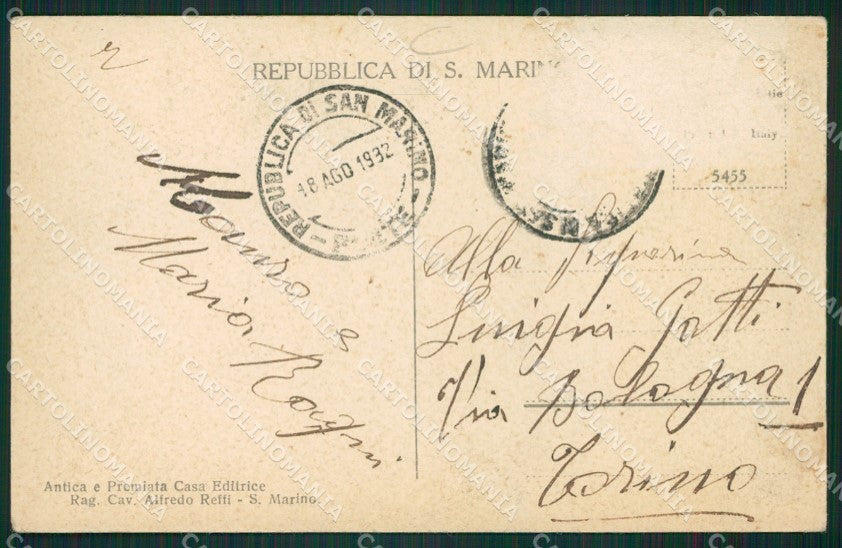 REPUBBLICA DI S. MARINO
REPUBBLICA DI SAN MARINO
18 AGO 1932
Italy
5455
Mauro e
Maria Ragni
Alla Signorina
Luigia Gatti
Via Bologna 1
Torino
Antica e Premiata Casa Editrice
Rag. Cav. Alfredo Reffi - S. Marino.
CARTOLINOMANIA